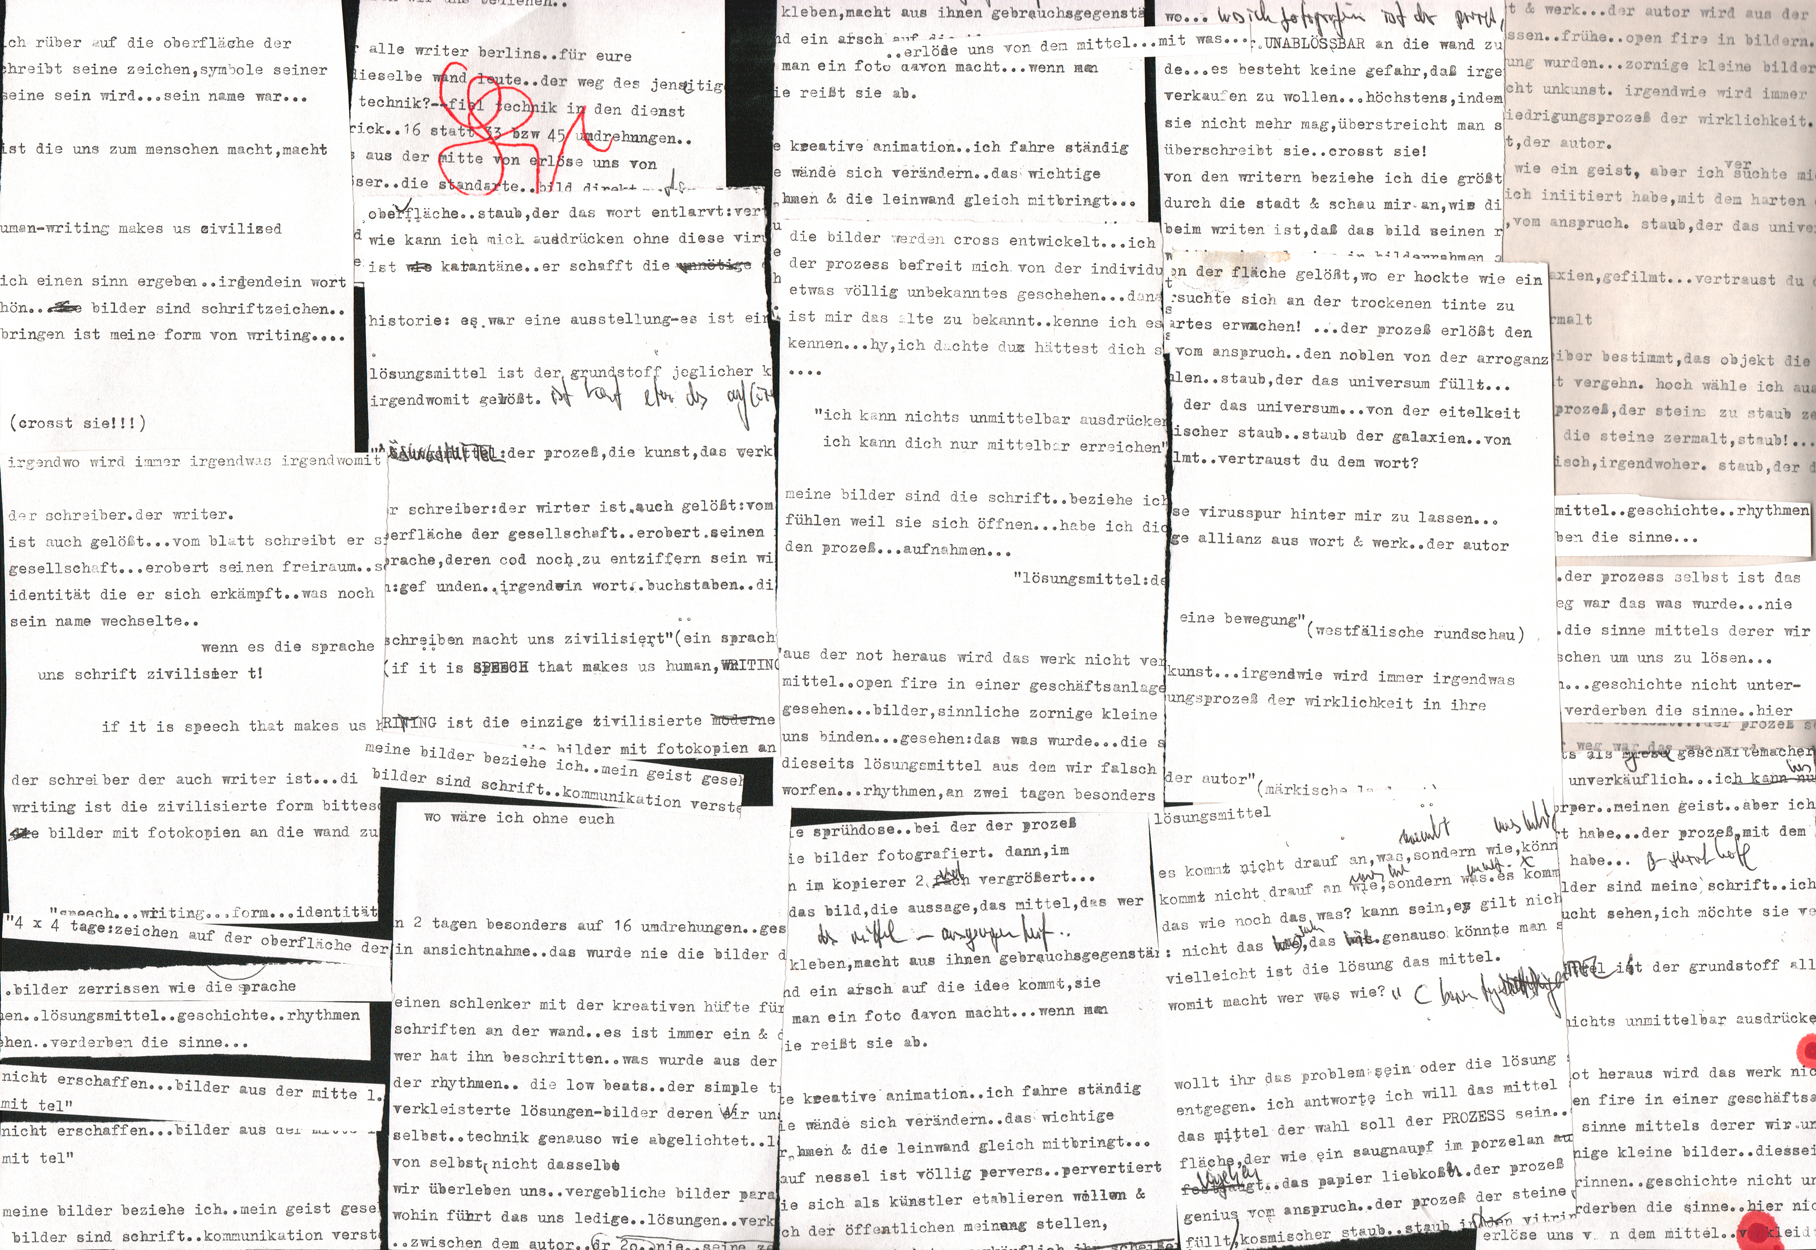 ich rüber auf die oberfläche der
schreibt seine zeichen,symbole seiner
seine sein wird...sein name war...
ist die uns zum menschen macht,macht
uman-writing makes us civilized
ich einen sinn ergeben..irgendein wort
hön.. bilder sind schriftzeichen..
bringen ist meine form von writing....
(crosst sie!!!)
irgendwo wird immer irgendwas irgendwomit
der schreiber.der writer.
ist auch gelößt...vom blatt schreibt er s
gesellschaft...erobert seinen freiraum..s
identität die er sich erkämpft..was noch
sein name wechselte..
wenn es die sprache
uns schrift zivilisier t!
if it is speech that makes us h
der schreiber der auch writer ist...di
writing ist die zivilisierte form bittes
bilder mit fotokopien an die wand zu
"speech...writing...form...identität
"4 x 4 tage:zeichen auf der oberfläche der
.bilder zerrissen wie die sprache
en..lösungsmittel..geschichte..rhythmen
ehen..verderben die sinne...
nicht erschaffen...bilder aus der mitte l.
mit tel"
nicht erschaffen...bilder aus der mitte l
mit tel"
meine bilder beziehe ich..mein geist gese
bilder sind schrift..kommunikation verste
r alle writer berlins..für eure
dieselbe wand route..der weg des jensitig
technik?--fiel technik in den dienst
rick..16 statt 33 bzw 45 umdrehnngen..
s aus der mitte von erlöse uns von
ser..die standarte..bild direkt
oberfläche..staub,der das wort entlarvt:ver
wie kann ich mich ausdrücken ohne diese viru
ist wie katantäne..er schafft die unnötige
historie: es.war eine ausstellung-es ist ein
lösungsmittel ist der grundstoff jeglicher k
irgendwomit gelößt.
:der prozeß,die kunst,das werk
r schreiber:der wirter ist.auch gelößt:vom
erfläche der gesellschaft..erobert.seinen
prache,deren cod noch.zu entziffern sein wi
n:gef unden..irgendein wort..buchstaben..di
schreiben macht uns zivilisiert"(ein sprach
(if it is SPEECH that makes us human,WRITING
RITING ist die einzige zivilisierte moderne
bilder mit fotokopien an
meine bilder beziehe ich..mein geist geseh
bilder sind schrift..kommunikation verste
wo wäre ich ohne euch
n 2 tagen besonders auf 16 umdrehungen..ges
in ansichtnahme..das wurde nie die bilder d
einen schlenker mit der kreativen hüfte für
schriften an der wand..es ist immer ein & d
wer hat ihn beschritten..was wurde aus der
der rhythmen.. die low beats..der simple t
verkleisterte lösungen-bilder deren wir un
selbst..technik genauso wie abgelichtet..l
von selbst,nicht dasselbe
wir überleben uns..vergebliche bilder para
wohin führt das uns ledige..lösungen..verk
..zwischen dem autor..
kleben,macht aus ihnen gebrauchsgegenstä
nd ein arsch auf die
..erlöse uns von dem mittel...mit was...
man ein foto davon macht...wenn man
ie reißt sie ab.
e kreative animation..ich fahre ständig
e wände sich verändern..das wichtige
hmen & die leinwand gleich mitbringt...
die bilder werden cross entwickelt...ich
der prozess befreit mich von der individu
etwas völlig unbekanntes geschehen...dan
ist mir das alte zu bekannt..kenne ich es
kennen...hy,ich dachte duz hättest dich s
....
"ich kann nichts unmittelbar ausdrücken
ich kann dich nur mittelbar erreichen"
meine bilder sind die schrift..beziehe ich
fühlen weil sie sich öffnen...habe ich dic
den prozeß...aufnahmen...
"lösungsmittel:de
'aus der not heraus wird das werk nicht ver
mittel..open fire in einer geschäftsanlage
gesehen...bilder,sinnliche zornige kleine
uns binden...gesehen:das was wurde...die s
dieseits lösungsmittel aus dem wir falsch
worfen...rhythmen,an zwei tagen besonders
e sprühdose..bei der der prozeß
ie bilder fotografiert. dann,im
n im kopierer 2 vergrößert...
das bild,die aussage,das mittel,das wer
kleben,macht aus ihnen gebrauchsgegenstän
nd ein arsch auf die idee kommt,sie
man ein foto davon macht...wenn man
ie reißt sie ab.
te kreative animation..ich fahre ständig
ie wände sich verändern..das wichtige
r,hmen & die leinwand gleich mitbringt...
auf nessel ist völlig pervers..pervertiert
ie sich als künstler etablieren wollen &
ch der öffentlichen meinung stellen,
wo...
UNABLÖSSBAR an die wand zu
de...es besteht keine gefahr,daß irge
verkaufen zu wollen...höchstens,indem
sie nicht mehr mag,überstreicht man s
überschreibt sie..crosst sie!
von den writern beziehe ich die größt
durch die stadt & schau mir an,wie di
beim writen ist,daß das bild seinen r
on der fläche gelößt,wo er hockte wie ein
suchte sich an der trockenen tinte zu
artes erwachen! ...der prozeß erlößt den
vom anspruch..den noblen von der arroganz
len..staub,der das universum füllt...
der das universum...von der eitelkeit
ischer staub..staub der galaxien..von
lmt..vertraust du dem wort?
se virusspur hinter mir zu lassen...
ge allianz aus wort & werk..der autor
eine bewegung"(westfälische rundschau)
kunst...irgendwie wird immer irgendwas
ungsprozeß der wirklichkeit in ihre
der autor"(märkische
lösungsmittel
es kommt nicht drauf an,was,sondern wie,könn
kommt nicht drauf an wie,sondern was.es komm
das wie noch das was? kann sein,es gilt nich
: nicht das das genauso könnte man s
vielleicht ist die lösung das mittel.
womit macht wer was wie?"
wollt ihr das problem sein oder die lösung
entgegen. ich antworte ich will das mittel
das mittel der wahl soll der PROZESS sein..
fläche,der wie ein saugnapf im porzelan
..das papier liebkoßt..der prozeß
genius vom anspruch..der prozeß der steine
füllt,kosmischer staub..staub in den vitrin
t & werk...der autor wird aus der
ssen..frühe..open fire in bildern.
ung wurden...zornige kleine bilder
cht unkunst. irgendwie wird immer
iedrigungsprozeß der wirklichkeit.
t,der autor.
wie ein geist, aber ich versuchte mi
ich iniitiert habe,mit dem harten
,vom anspruch. staub,der das unive
axien,gefilmt...vertraust du
rmalt
iber bestimmt,das objekt die
t vergehn. hoch wähle ich aus
prozeß,der steine zu staub ze
die steine zermalt,staub!...
isch,irgendwoher. staub,der d
mittel..geschichte..rhythmen
ben die sinne...
.der prozess selbst ist das
eg war das was wurde...nie
.die sinne mittels derer wir
schen um uns zu lösen...
n...geschichte nicht unter-
verderben die sinne..hier
weg war das was
ts als geschäftemacher
unverkäuflich...ich kann nu
rper..meinen geist..aber ich
t habe...der prozeß,mit dem
habe...
lder sind meine schrift..ich
ucht sehen,ich möchte sie ve
ist der grundstoff all
nichts unmittelbar ausdrücke
ot heraus wird das werk nic
en fire in einer geschäftsa
sinne mittels derer wir un
nige kleine bilder..diessei
rinnen..geschichte nicht un
rderben die sinne..hier nic
erlöse uns v n dem mittel..v kleid